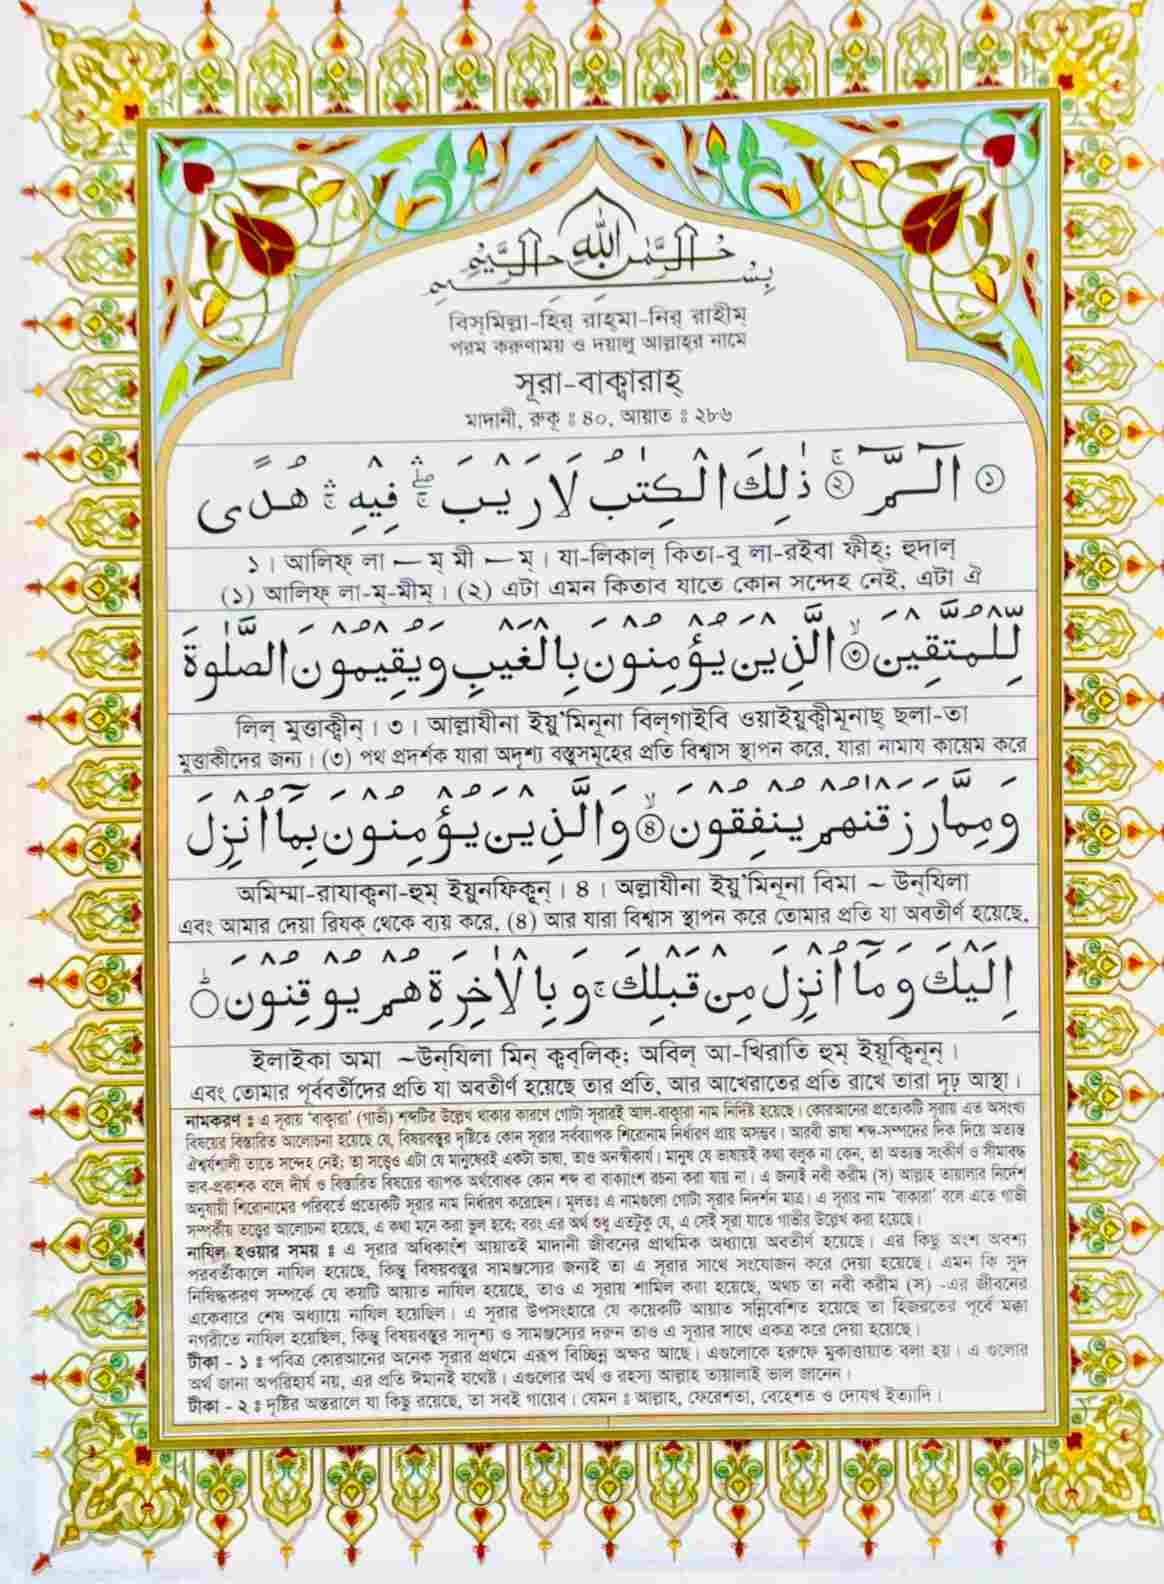 بِسْمِ اللّٰهِ الرَّحْمٰنِ الرَّحِيْمِ
বিস্‌মিল্লা-হির্ রাহ্‌মা-নির্ রাহীম্
পরম করুণাময় ও দয়ালু আল্লাহ্‌র নামে
সূরা-বাক্বারাহ্
মাদানী, রুকূ ঃ ৪০, আয়াত ঃ ২৮৬
১ الٓـمّٓ ۚ ২ ذٰلِكَ الْكِتٰبُ لَا رَيْبَ ۛۖۚ فِيْهِ ۛۚ هُدًى
১। আলিফ্ লা — ম্ মী — ম্। যা-লিকাল্ কিতা-বু লা-রইবা ফীহ্; হুদাল্
(১) আলিফ্ লা-ম্-মীম্। (২) এটা এমন কিতাব যাতে কোন সন্দেহ নেই, এটা ঐ
لِّلْمُتَّقِيْنَ ۙ ৩ الَّذِيْنَ يُؤْمِنُوْنَ بِالْغَيْبِ وَيُقِيْمُوْنَ الصَّلٰوةَ
লিল্ মুত্তাক্বীন্। ৩। আল্লাযীনা ইয়ু'মিনূনা বিল্‌গাইবি ওয়াইয়ুক্বীমূনাছ্ ছলা-তা
মুত্তাকীদের জন্য। (৩) পথ প্রদর্শক যারা অদৃশ্য বস্তুসমূহের প্রতি বিশ্বাস স্থাপন করে, যারা নামায কায়েম করে
وَمِمَّا رَزَقْنٰهُمْ يُنْفِقُوْنَ ۙ ৪ وَالَّذِيْنَ يُؤْمِنُوْنَ بِمَآ اُنْزِلَ
অমিম্মা-রাযাক্বনা-হুম্ ইয়ুনফিকূন্। ৪। অল্লাযীনা ইয়ু'মিনূনা বিমা ~ উন্‌যিলা
এবং আমার দেয়া রিযক্ থেকে ব্যয় করে, (৪) আর যারা বিশ্বাস স্থাপন করে তোমার প্রতি যা অবতীর্ণ হয়েছে,
اِلَيْكَ وَمَآ اُنْزِلَ مِنْ قَبْلِكَ ۚ وَبِالْاٰخِرَةِ هُمْ يُوْقِنُوْنَ ۗ
ইলাইকা অমা ~উন্‌যিলা মিন্ ক্বব্‌লিক; অবিল্ আ-খিরাতি হুম্ ইয়ূক্বিনূন্।
এবং তোমার পূর্ববর্তীদের প্রতি যা অবতীর্ণ হয়েছে তার প্রতি, আর আখেরাতের প্রতি রাখে তারা দৃঢ় আস্থা।
নামকরণ ঃ এ সূরায় 'বাক্বারা' (গাভী) শব্দটির উল্লেখ থাকার কারণে গোটা সূরারই আল-বাক্বারা নাম নির্দিষ্ট হয়েছে। কোরআনের প্রত্যেকটি সূরায় এত অসংখ্য
বিষয়ের বিস্তারিত আলোচনা হয়েছে যে, বিষয়বস্তুর দৃষ্টিতে কোন সূরার সর্বব্যাপক শিরোনাম নির্ধারণ প্রায় অসম্ভব। আরবী ভাষা শব্দ-সম্পদের দিক দিয়ে অত্যন্ত
ঐশ্বর্যশালী তাতে সন্দেহ নেই; তা সত্ত্বেও এটা যে মানুষেরই একটা ভাষা, তাও অনস্বীকার্য। মানুষ যে ভাষায়ই কথা বলুক না কেন, তা অত্যন্ত সংকীর্ণ ও সীমাবদ্ধ
ভাব-প্রকাশক বলে দীর্ঘ ও বিস্তারিত বিষয়ের ব্যাপক অর্থবোধক কোন শব্দ বা বাক্যাংশ রচনা করা যায় না। এ জন্যই নবী করীম (স) আল্লাহ তায়ালার নির্দেশ
অনুযায়ী শিরোনামের পরিবর্তে প্রত্যেকটি সূরার নাম নির্ধারণ করেছেন। মূলতঃ এ নামগুলো গোটা সূরার নিদর্শন মাত্র। এ সূরার নাম 'বাকারা' বলে এতে গাভী
সম্পর্কীয় তত্ত্বের আলোচনা হয়েছে, এ কথা মনে করা ভুল হবে; বরং এর অর্থ শুধু এতটুকু যে, এ সেই সূরা যাতে গাভীর উল্লেখ করা হয়েছে।
নাযিল হওয়ার সময় ঃ এ সূরার অধিকাংশ আয়াতই মাদানী জীবনের প্রাথমিক অধ্যায়ে অবতীর্ণ হয়েছে। এর কিছু অংশ অবশ্য
পরবর্তীকালে নাযিল হয়েছে, কিন্তু বিষয়বস্তুর সামঞ্জস্যের জন্যই তা এ সূরার সাথে সংযোজন করে দেয়া হয়েছে। এমন কি সুদ
নিষিদ্ধকরণ সম্পর্কে যে কয়টি আয়াত নাযিল হয়েছে, তাও এ সূরায় শামিল করা হয়েছে, অথচ তা নবী করীম (স) -এর জীবনের
একেবারে শেষ অধ্যায়ে নাযিল হয়েছিল। এ সূরার উপসংহারে যে কয়েকটি আয়াত সন্নিবেশিত হয়েছে তা হিজরতের পূর্বে মক্কা
নগরীতে নাযিল হয়েছিল, কিন্তু বিষয়বস্তুর সাদৃশ্য ও সামঞ্জস্যের দরুন তাও এ সূরার সাথে একত্র করে দেয়া হয়েছে।
টীকা - ১ ঃ পবিত্র কোরআনের অনেক সূরার প্রথমে এরূপ বিচ্ছিন্ন অক্ষর আছে। এগুলোকে হরুফে মুকাত্তায়াত বলা হয়। এ গুলোর
অর্থ জানা অপরিহার্য নয়, এর প্রতি ঈমানই যথেষ্ট। এগুলোর অর্থ ও রহস্য আল্লাহ তায়ালাই ভাল জানেন।
টীকা - ২ ঃ দৃষ্টির অন্তরালে যা কিছু রয়েছে, তা সবই গায়েব। যেমন ঃ আল্লাহ, ফেরেশতা, বেহেশত ও দোযখ ইত্যাদি।